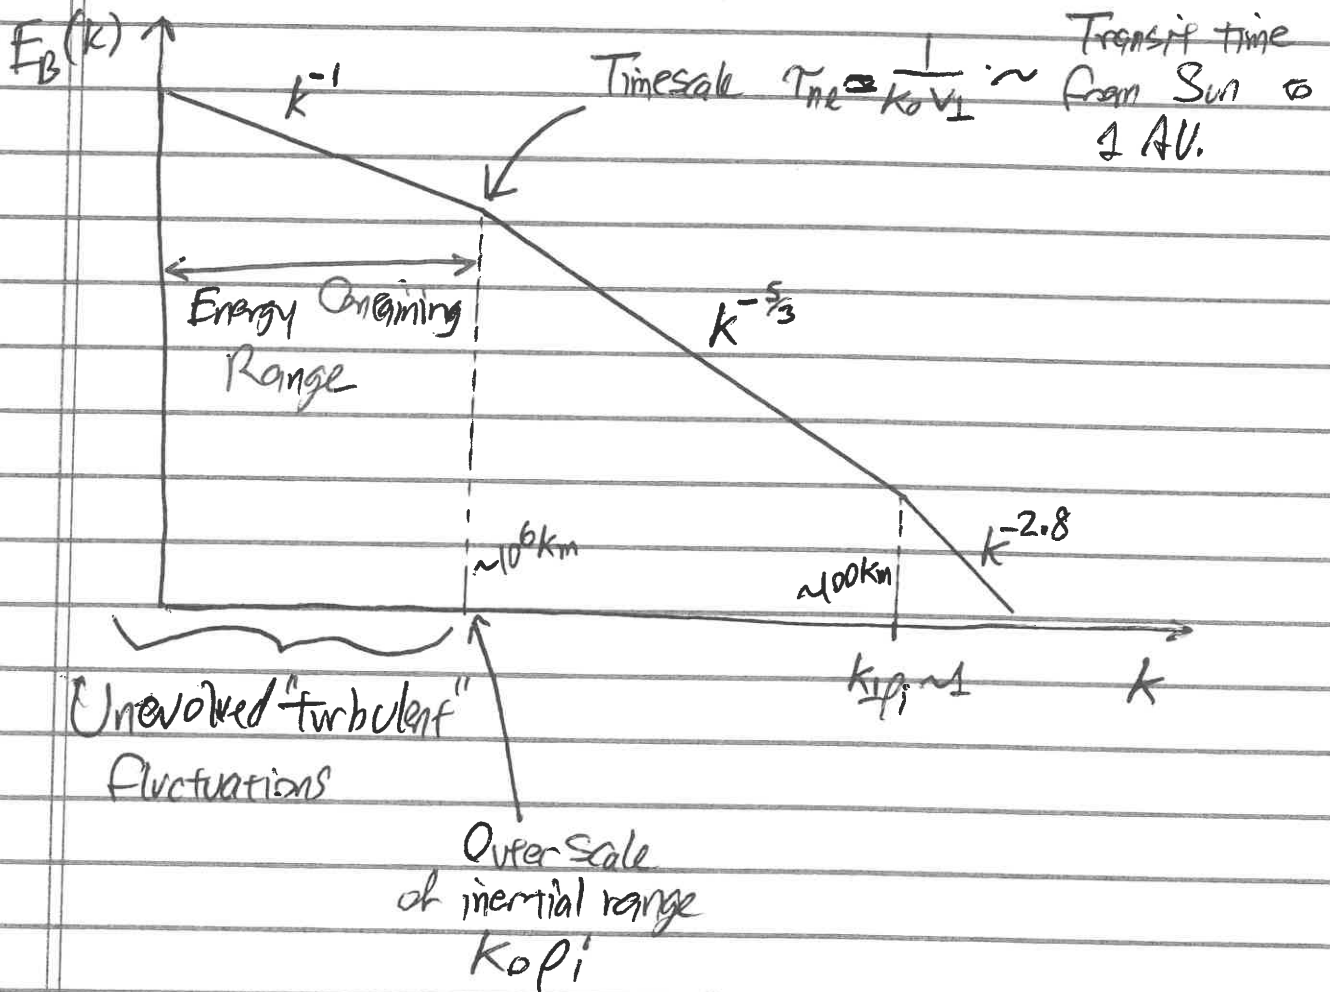 E_B(k)
k^-1
Timescale τ_nl = 1/(k_0 v_⊥) ~ Transit time
from Sun to
1 AU.
Energy Containing
Range
k^-5/3
~10^6 km
~100 km
k^-2.8
k_⊥ρ_i ~ 1
k
Unevolved "turbulent"
fluctuations
Outer Scale
of inertial range
k_0ρ_i